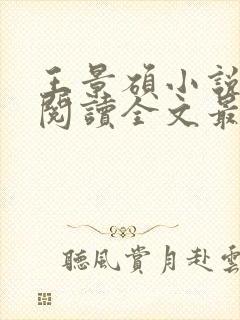 王景碩小說
閱讀全文最
聽風賞月赴雲